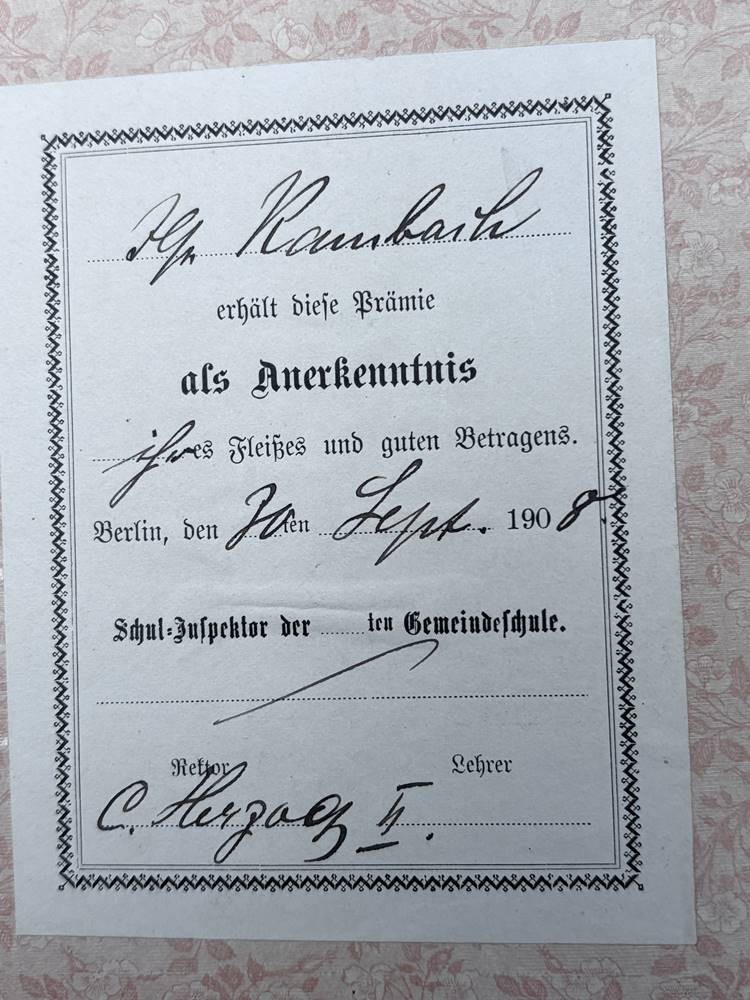 Rambach
erhält diese Prämie
als Anerkenntnis
ihres Fleißes und guten Betragens.
Berlin, den 30ten Sept. 1908.
Schul-Inspektor der ........ten Gemeindeschule.
Rektor Lehrer
C. Herzog II.